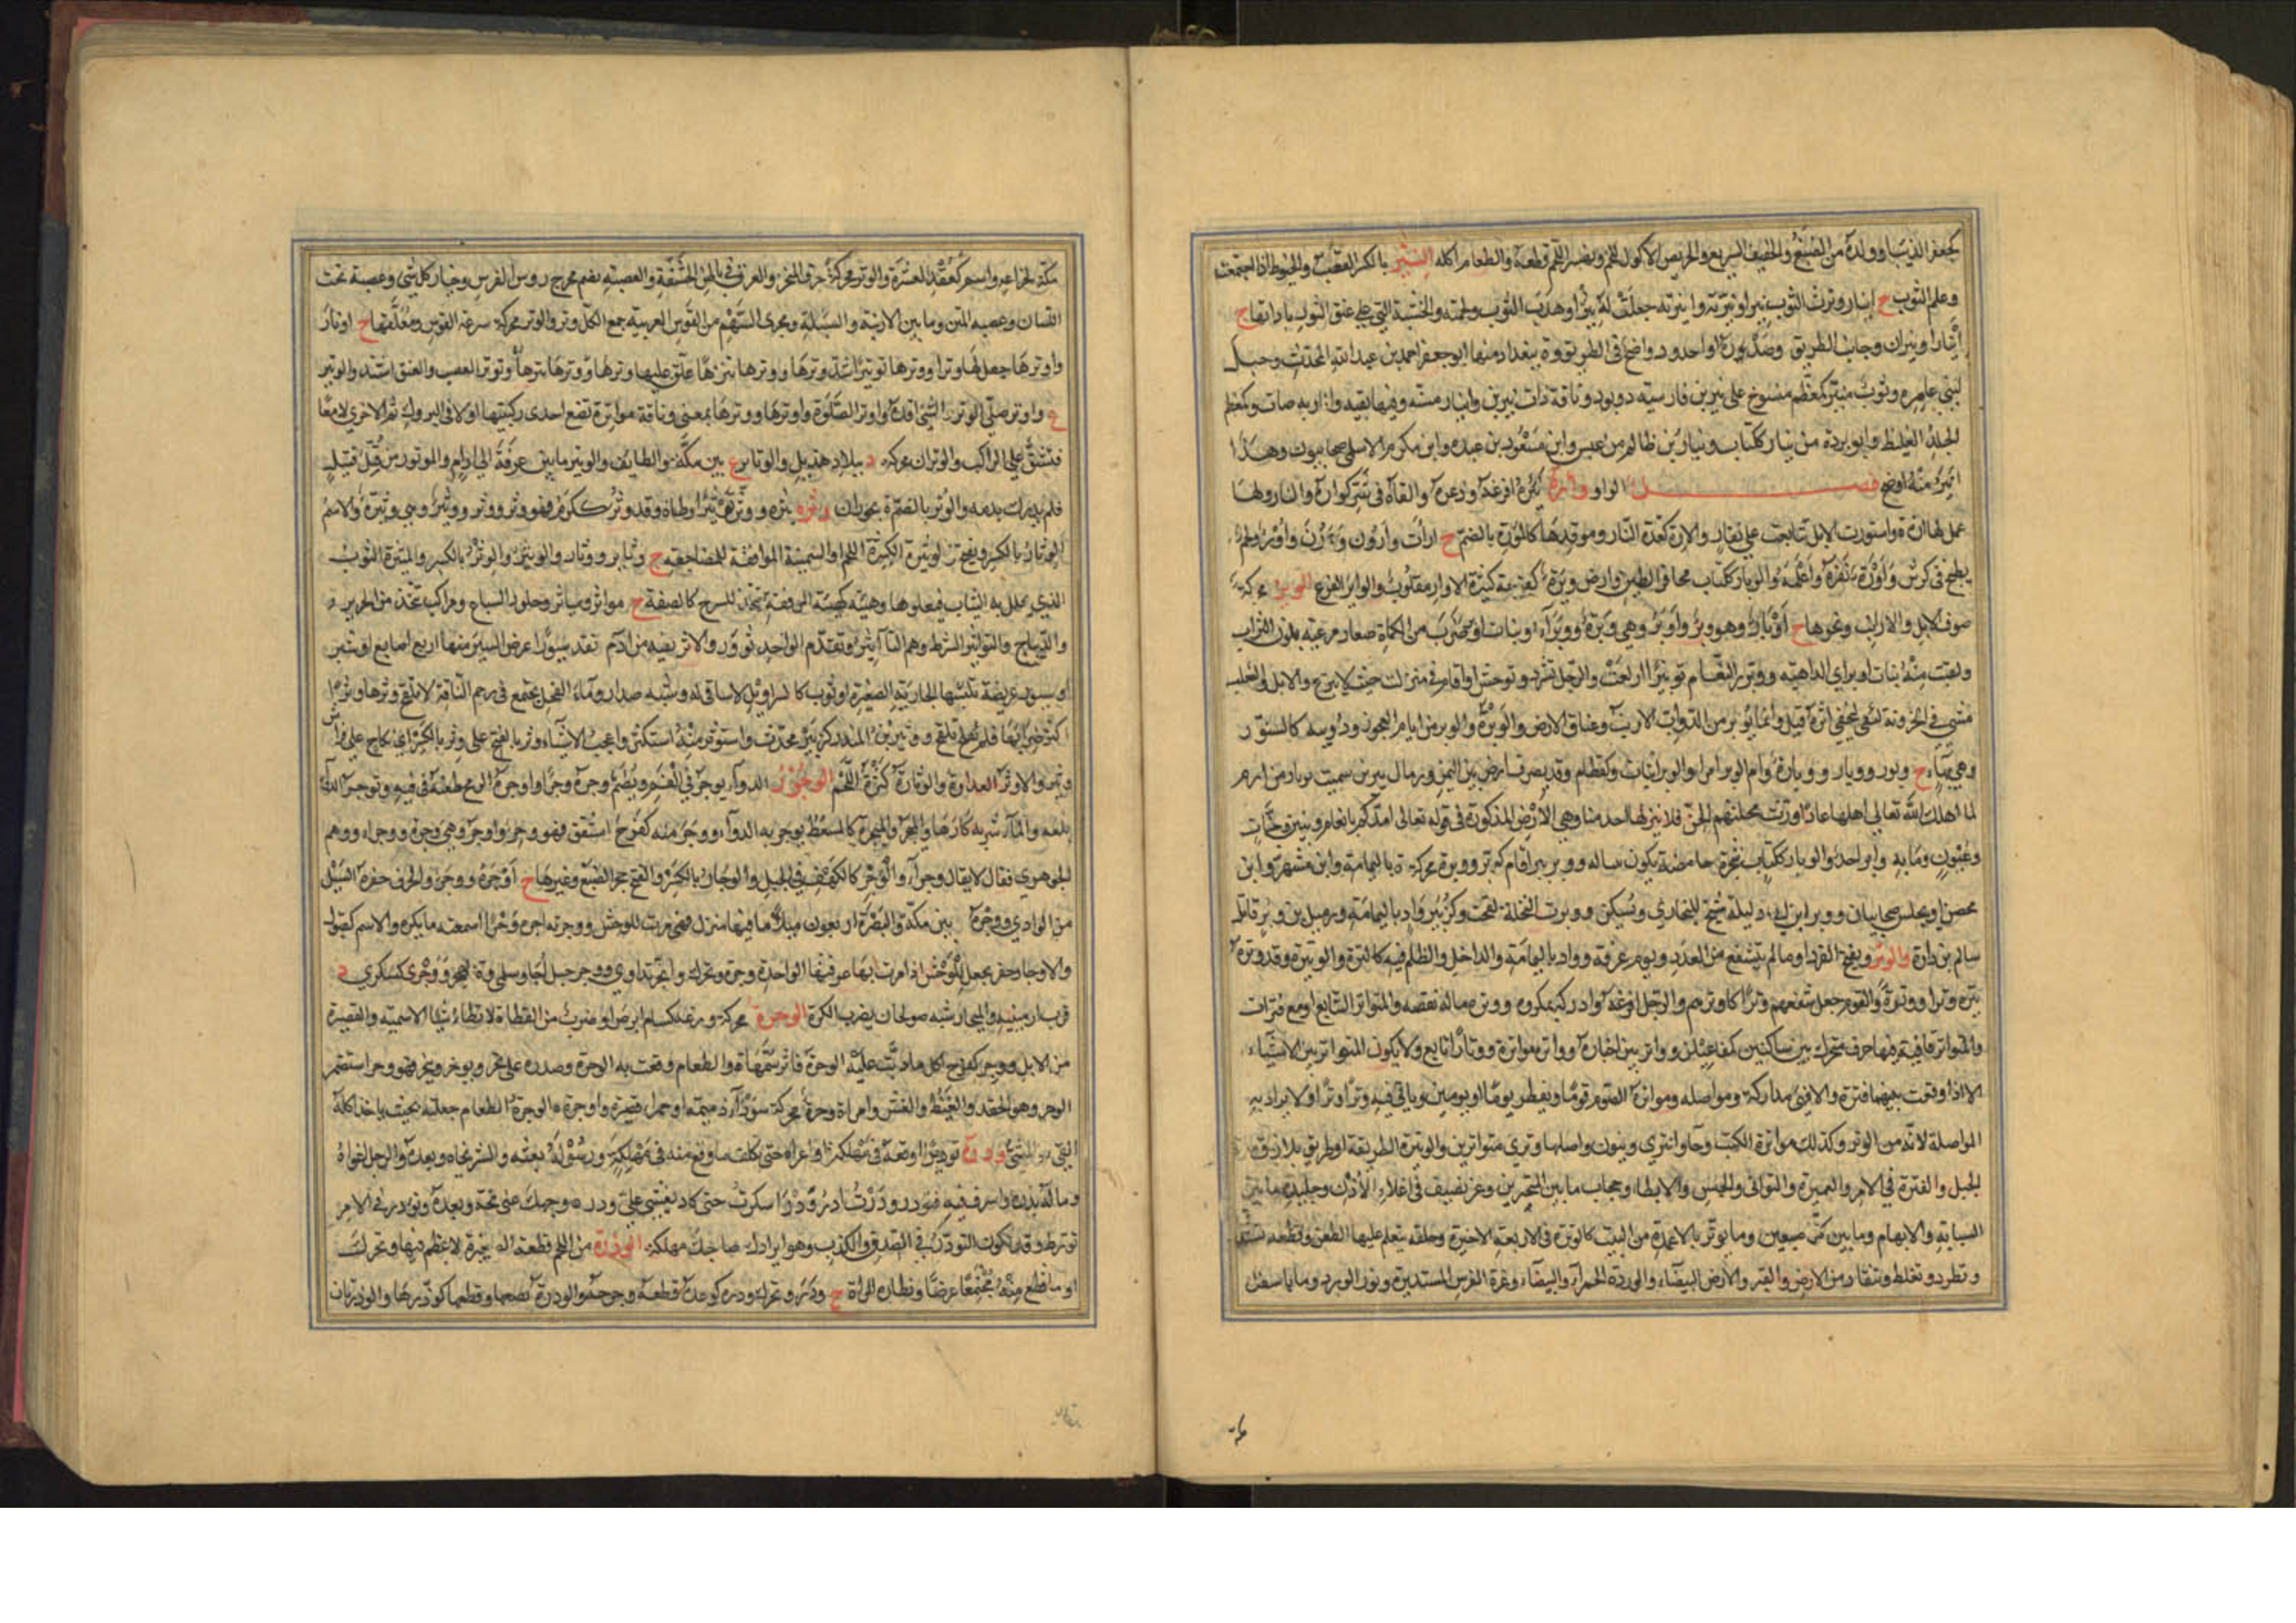 كجعفر الذئب او ولده من الضبع والخفيف السريع والحريص الاكول للحم ونهسر اللحم قطعه والطعام اكله النير بالكسر القصب والخيوط اذا اجتمعت
وعلم الثوب ح انيار ونرت الثوب نيرا ونيرته وانرته جعلت له نيرا وهدب الثوب ولحمته والخشبة التي على عنق الثور باداتها ح
انيار ونيران وجانب الطريق وصدره او اخدود واضح في الطريق وة ببغداد منها ابو جعفر احمد بن عبد الله المحدث وجبل
لبني عامره وثوب منير كمعظم منسوج على نيرين فارسيته دوپود وناقة ذات نيرين وانيار مسنة وفيها بقية وناوره صات وكمعظم
الجلد الغليظ وابو بردة بن نيار ككتاب ونيار بن ظالم بن عبس وابن مسعود بن عبده وابن مكرم الاسلمي صحابيون وهذا
انير منه اوضح فصل الواو وأره يئره افزعه وذعره والقاه في شر كوأره والنار ولها
عمل لها ارة واستورت الابل تتابعت على نفار والارة كعدة النار وموقدها كالؤرة بالضم ح ارات وارون
صوف الابل والارانب ونحوها ح اوبار وهو وبر واوبر وهي وبرة ووبراء وبنات اوبر ضرب من الكماة صغار مزغبة بلون التراب
ولقيت منه بنات اوبر اي الداهية ووبر رال النعام توبيرا ازلغب والرجل تشرد وتوحش او اقام في منزله حينا لا يبرح والارنب والثعلب
مشى في الحزونة لتخفى اثره قيل وانما يوبر من الدواب الارنب وعناق الارض والوبر والوبر من ايام العجوز ودويبة كالسنور
وهي بهاء ح وبور ووبار ووبارة وام الوبر امراة والوبراء نبات وكقطام وقد يصرف ارض بين اليمن ورمال يبرين سميت بوبار بن ارم
لما اهلك الله تعالى اهلها عادا ورثت محلتهم الجن فلا ينزلها احد منا وهي الارض المذكورة في قوله تعالى امدكم بانعام وبنين وجنات
وعيون وما به وابر احد والوبار ككتاب شجرة حامضة يكون بباله ووبر يبر اقام كوبر ووبرة محركة ة باليمامة وابن مشهر وابن
محصن او يحلس صحابيان ووبر ابن ابي دليلة شيخ للبخاري ويسكن ووبرت النخلة لقحت وكزبير واد باليمامة وزميل بن وبير قاتل
سالم بن دارة والوتر ويفتح الفرد او ما لم يتشفع من العدد ويوم عرفة وواد باليمامة والذحل والظلم فيه كالترة والوتيرة وقد وتره
يتره وترا ووترة والقوم جعل شفعهم وترا كاوترهم والرجل افزعه او ادركه بمكروه ووتره ماله نقصه والمتواتر التتابع او مع فترات
والمتواتر قافية فيها حرف متحرك بين ساكنين كمفاعيلن وواتر بين اخباره وواتره مواترة ووتارا تابع ولا يكون المتواتر بين الاشياء
الا اذا وقعت بينهما فترة والا فهي مداركة ومواصلة ومواترة الصوم ان تصوم يوما ويفطر يوما او يومين وياتي فيه وترا وترا ولا يراد به
المواصلة لانه من الوتر وكذلك مواترة الكتب وجاؤا تترى وينون واصلها وترى متواترين والوتيرة الطريقة او طريق يلازق
الجبل والفترة في الامر والغميزة والتواني والحبس والابطاء وحجاب ما بين المنخرين وغريضيف في اعلى الاذن وجليدة ما بين
السبابة والابهام وما بين كل اصبعين وما يوتر بالاعمدة من البيت كالوترة في الاربعة الاخيرة وحلقة يتعلم عليها الطعن وقطعة تستدق
وتطرد وتغلظ وتنقاد من الارض والقبر والارض البيضاء والوردة الحمراء والبيضاء وغرة الفرس المستديرة ونور الورد وماء باسفل
مكة لخزاعة واسم كعقد العشرة والوترة محركة حرف المنخر والعرق في باطن الحشفة والعصبة يضم مخرج روث الفرس وحتار كل شيء وعصبة تحت
اللسان وعصبة المتن وما بين الارنبة والسبلة ومجرى السهم من القوس العربية جمع الكل وتر والوتر محركة شرعة القوس ومعلقها ح اوتار
واوترها جعل لها وترا ووترها توتيرا شد وترها ووترها يترها علق عليها وترها وتوتر العصب والعنق اشتد والوتير
ع واوتر صلى الوتر والشيء افذه واوتر الصلوة واوترها ووترها بمعنى وناقة مواترة تضع احدى ركبتيها اولا في البروك ثم الاخرى لا معا
فتشق على الراكب والوتران محركة د ببلاد هذيل والوتائر ع بين مكة والطائف والوتير ما بين عرفة الى ادام والموتور من قتل له قتيل
فلم يدرك بدمه والوتر بالضم ة بحوران وثره يثره ووثره توثيرا وطأه وقد وثر ككرم فهو وثر ووثر ووثير وهي وثيرة والاسم
الوثار بالكسر ويفتح والوثيرة الكثيرة اللحم او السمينة الموافقة للمضاجعة ح وثائر ووثار والوثير والوثر بالكسر والميثرة الثوب
الذي تجلل به الثياب فيعلوها وهنة كهيئة المرفقة تتخذ للسرج كالصفة ح مواثر ومياثر وجلود السباع ومراكب تتخذ من الحرير و
والديباج والتواثير الشرط وهم التآثير وتقدم الواحد ثؤرور والوثر نقبة من ادم تقد سيورا عرض السير منها اربع اصابع او شبر
او سيور عريضة تلبسها الجارية الصغيرة او ثوب كالسراويل لا ساقي له وشبه صدار وماء الفحل يجتمع في رحم الناقة لا تلقح وثرها وثرا
اكثر ضرابها فلم تلقح ووثير بن المنذر كزبير محدث واستوثر منه استكثر واعجب الاشياء وثر بالفتح على وثر بالكسر اي نكاح على فراش
وثير والاوثر العداوة والوثارة كثرة اللحم الوجور الدواء يوجر في الفم ويضم وجره وجرا واوجره الرمح طعنه في فيه وتوجر الدواء
بلعه والماء شربه كارها والميجر والميجرة كالمسعط يوجر به الدواء ووجر منه كفرح اشفق فهو وجر واوجر وهي وجرة ووجراء ووهم
الجوهري فقال لا يقال وجراء والوجر كالكهف في الجبل والوجار بالكسر والفتح جحر الضبع وغيرها ح اوجرة ووجر والجرف حفره السيل
من الوادي ووجرة بين مكة والبصرة اربعون ميلا ما فيها منزل فهي مرت للوحش ووجرته اجره وجرا اسمعته ما يكره والاسم كقبول
والاوجار حفر يجعل للوحش اذا مرت بها عرقبتها الواحدة وجرة ويحرك واتجر تداوى ووجر جبل باجا وسلمى وة بهجر ووجرى كسكرى د
قرب ارمينية والميجار شبه صولجان يضرب الكرة الوحرة محركة وزغة كسام ابرص او ضرب من القطاة لا تطأ شيئا الا سمته والقصيرة
من الابل ووحر كفرح اكل ما دبت عليه الوحرة فاثر سمها فيه والطعام وقعت به الوحرة وصدره علي يحر ويوحر وييحر فهو وحر استضمر
الوحر وهو الحقد والغيظ والغش وامراة وحرة محركة سوداء دميمة او حمراء قصيرة واوحرة الوحرة الطعام جعلته بحيث ياخذ اكله
القيء والمشي ودره توديرا اوقعه في مهلكة او اغراه حتى تكلف ما وقع منه في مهلكة ورسوله بعثه والشر نحاه وبعده والرجل اغواه
وماله بذره واسرف فيه فتودر وودرت ادر ودرا سكرت حتى كاد يغشى علي ودر وجهك عني نحه وبعده وتودر في الامر
تورط وقد يكون التودر في الصدق والكذب وهو ايرادك صاحبك مهلكة الوذرة من اللحم قطعة الصغيرة لا عظم فيها ويحرك
او ما قطع منه مجتمعا عرضا وبظارة المراة ح وذر ويحرك ووذره كوعده قطعه وجرحه والوذرة بضعها وقطعها كوذرها والوذرتان